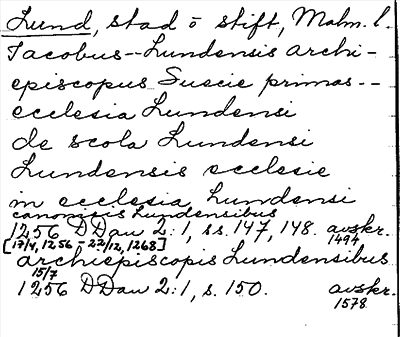 Lund, stad o stift, Malm. l.
Jacobus -- Lundensis archi-
episcopus Suecie primas --
ecclesia Lundensi
de scola Lundensi
Lundensis ecclesie
in ecclesia Lundensi
canonicis Lundensibus
1256 DDan 2:1, ss. 147, 148. avskr. 1494
[17/4, 1256 - 22/12, 1268]
archiepiscopis Lundensibus
15/7
1256 DDan 2:1, s. 150. avskr.
1578